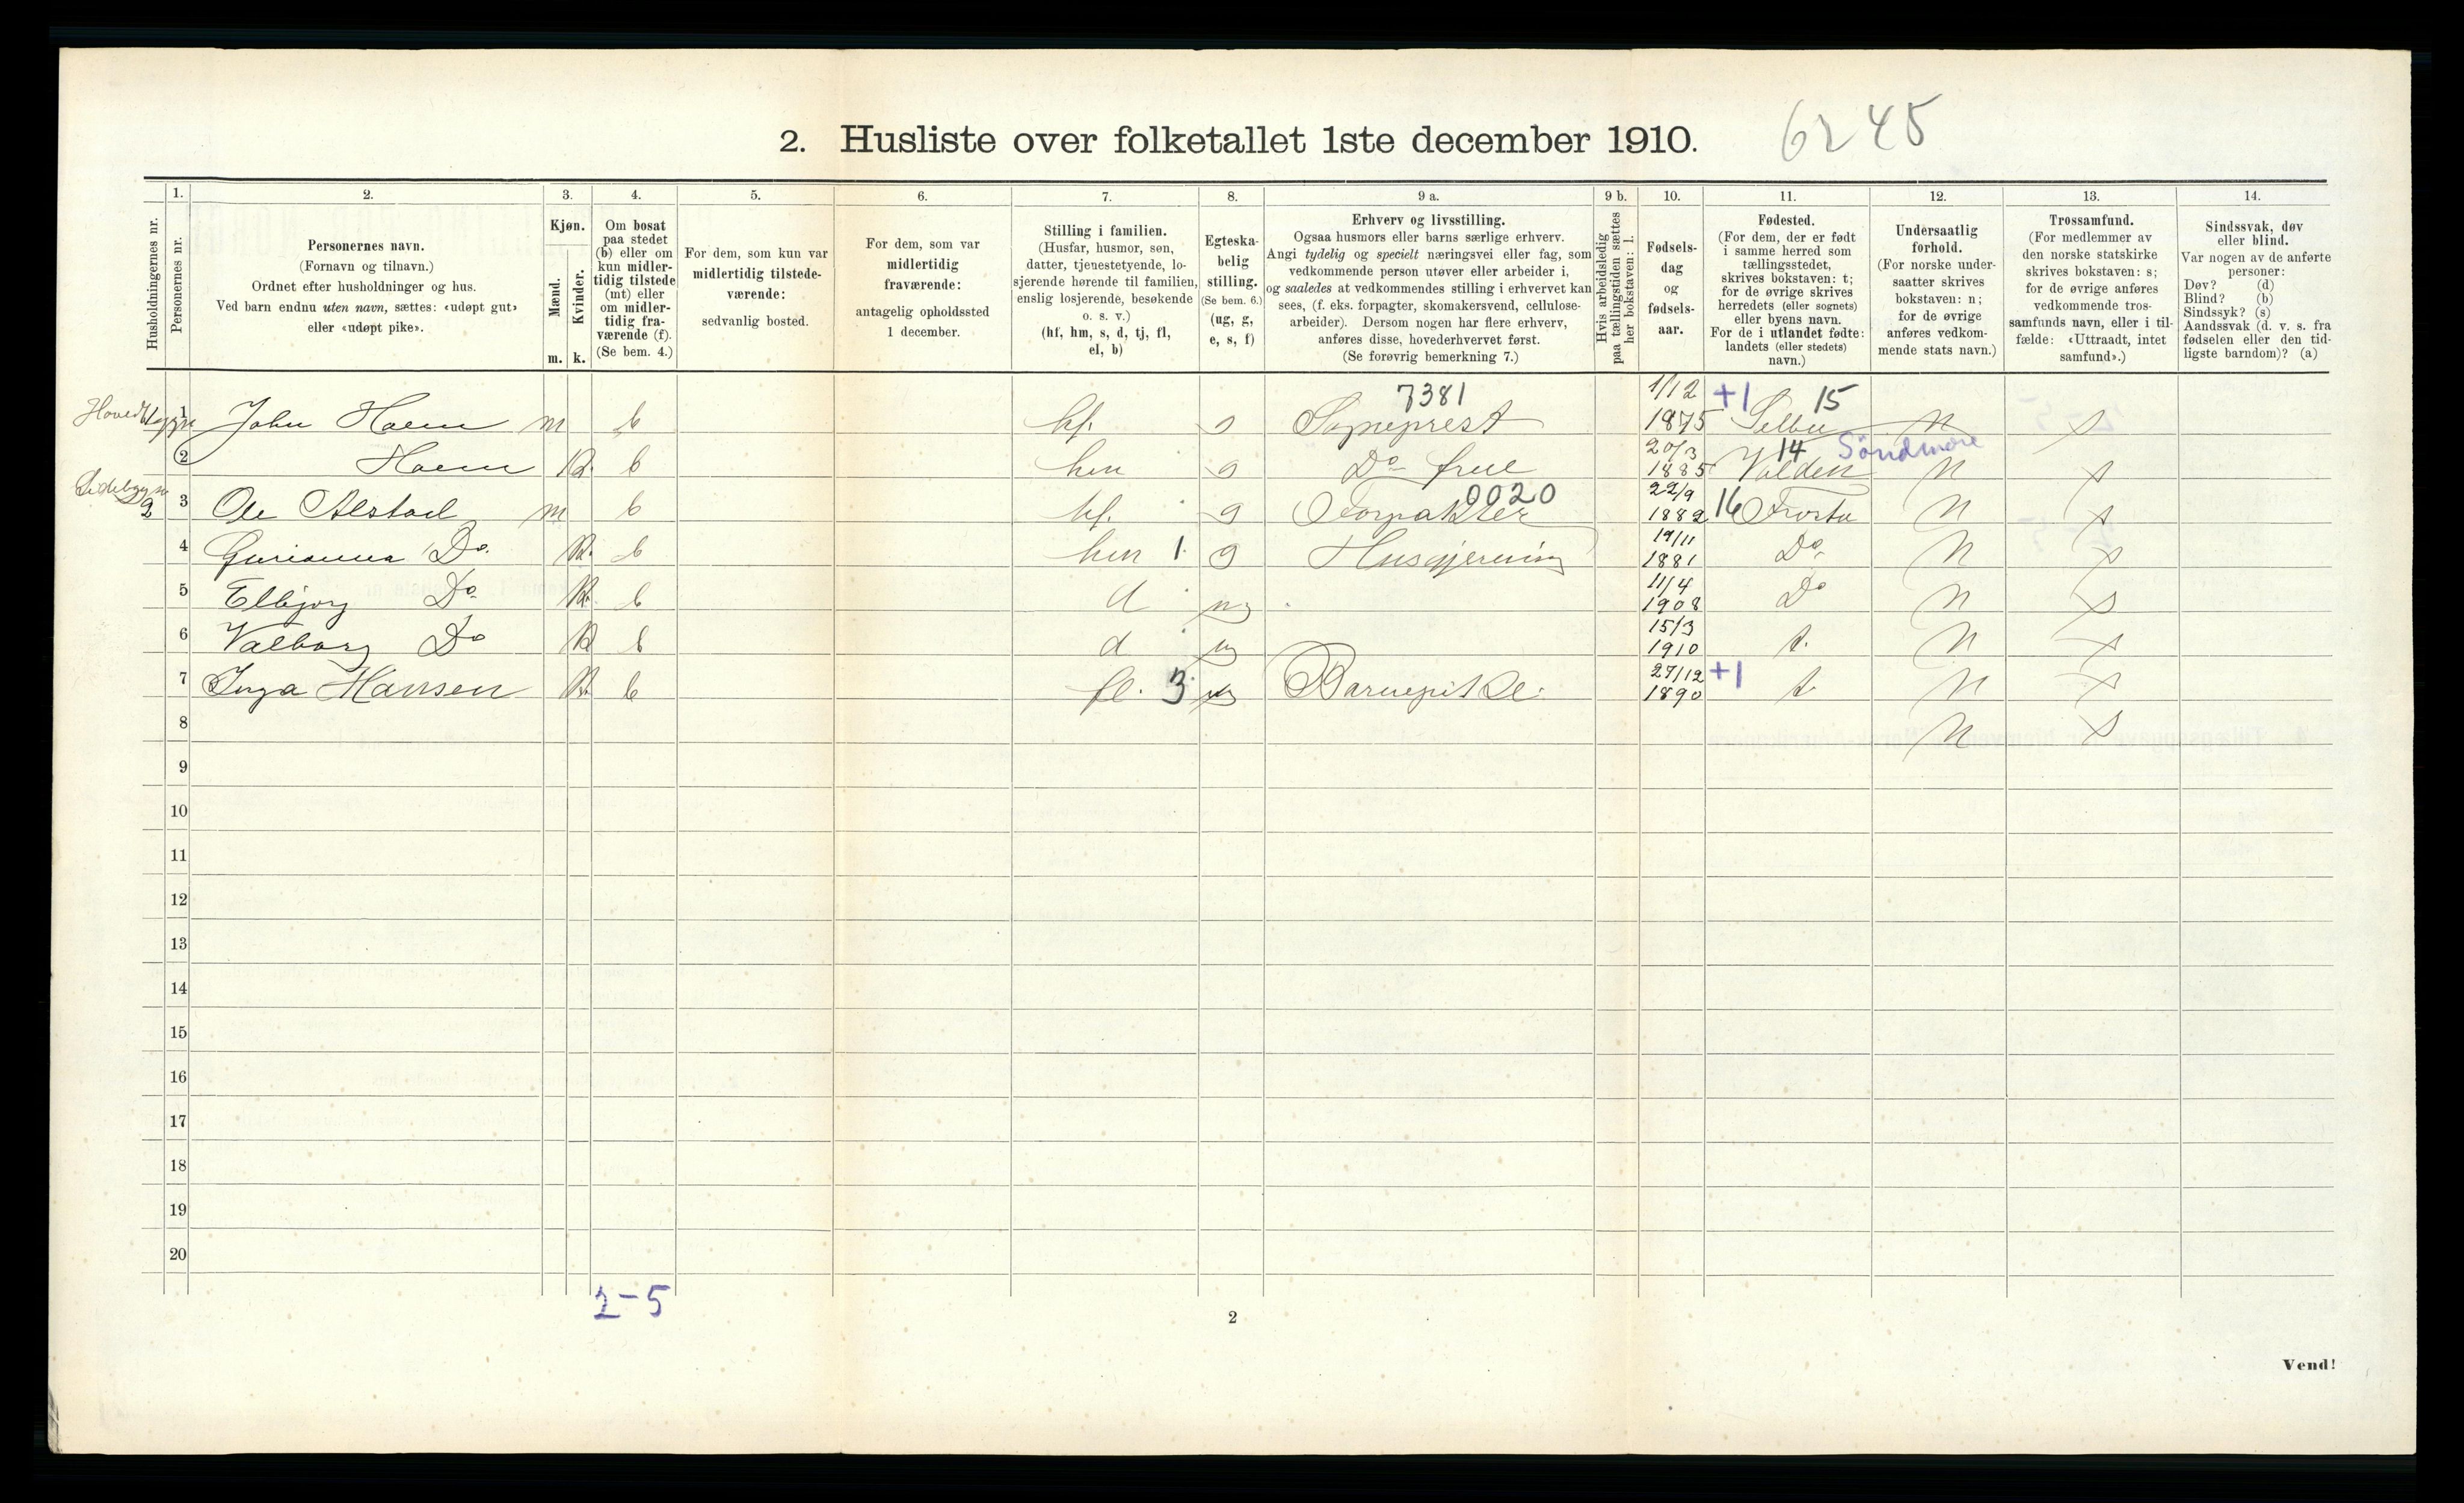 2. Husliste over folketallet 1ste december 1910. 6245
1. 2. 3. 4. 5. 6. 7. 8. 9 a. 9 b. 10. 11. 12. 13. 14.
Husholdningernes nr.
Personernes nr.
Personernes navn.
(Fornavn og tilnavn.)
Ordnet efter husholdninger og hus.
Ved barn endnu uten navn, sættes: «udøpt gut»
eller «udøpt pike».
Kjøn.
Mænd.
Kvinder.
m. k.
Om bosat
paa stedet
(b) eller om
kun midler-
tidig tilstede
(mt) eller
om midler-
tidig fra-
værende (f).
(Se bem. 4.)
For dem, som kun var
midlertidig tilstede-
værende:
sedvanlig bosted.
For dem, som var
midlertidig
fraværende:
antagelig opholdssted
1 december.
Stilling i familien.
(Husfar, husmor, søn,
datter, tjenestetyende, lo-
sjerende hørende til familien,
enslig losjerende, besøkende
o. s. v.)
(hf, hm, s, d, tj, fl,
el, b)
Egteska-
belig
stilling.
(Se bem. 6.)
(ug, g,
e, s, f)
Erhverv og livsstilling.
Ogsaa husmors eller barns særlige erhverv.
Angi tydelig og specielt næringsvei eller fag, som
vedkommende person utøver eller arbeider i,
og saaledes at vedkommendes stilling i erhvervet kan
sees, (f. eks. forpagter, skomakersvend, cellulose-
arbeider). Dersom nogen har flere erhverv,
anføres disse, hovederhvervet først.
(Se forøvrig bemerkning 7.)
Hvis arbeidsledig
paa tællingstiden sættes
her bokstaven: l.
Fødsels-
dag
og
fødsels-
aar.
Fødested.
(For dem, der er født
i samme herred som
tællingsstedet,
skrives bokstaven: t;
for de øvrige skrives
herredets (eller sognets)
eller byens navn.
For de i utlandet fødte:
landets (eller stedets)
navn.)
Undersaatlig
forhold.
(For norske under-
saatter skrives
bokstaven: n;
for de øvrige
anføres vedkom-
mende stats navn.)
Trossamfund.
(For medlemmer av
den norske statskirke
skrives bokstaven: s;
for de øvrige anføres
vedkommende tros-
samfunds navn, eller i til-
fælde: «Uttraadt, intet
samfund».)
Sindssvak, døv
eller blind.
Var nogen av de anførte
personer:
Døv? (d)
Blind? (b)
Sindssyk? (s)
Aandssvak (d. v. s. fra
fødselen eller den tid-
ligste barndom)? (a)
7381 1/12 +1 15
1 John Hoem m b hf. g Sogneprest 1875 Selbu n s
20/3 14 Söndmøre
2 Hoem k b hm g Do frue 1885 Volden n s
0020 22/9
2 3 Ole Alstad m b hf. g Forpakter 1882 16 Frosta n s
19/11
4 Gurianna Do. k b hm 1 g Husgjerning 1881 Do n s
11/4
5 Elbjorg Do k b d ug 1908 Do n s
15/3
6 Valborg Do k b d ug 1910 t. n s
27/12 +1
7 Inga Hansen k b fl. 3 ug Barnepike. 1890 t. n s
8 n s
9
10
11
12
13
14
15
16
17
18
19
20
2-5
2
Vend!